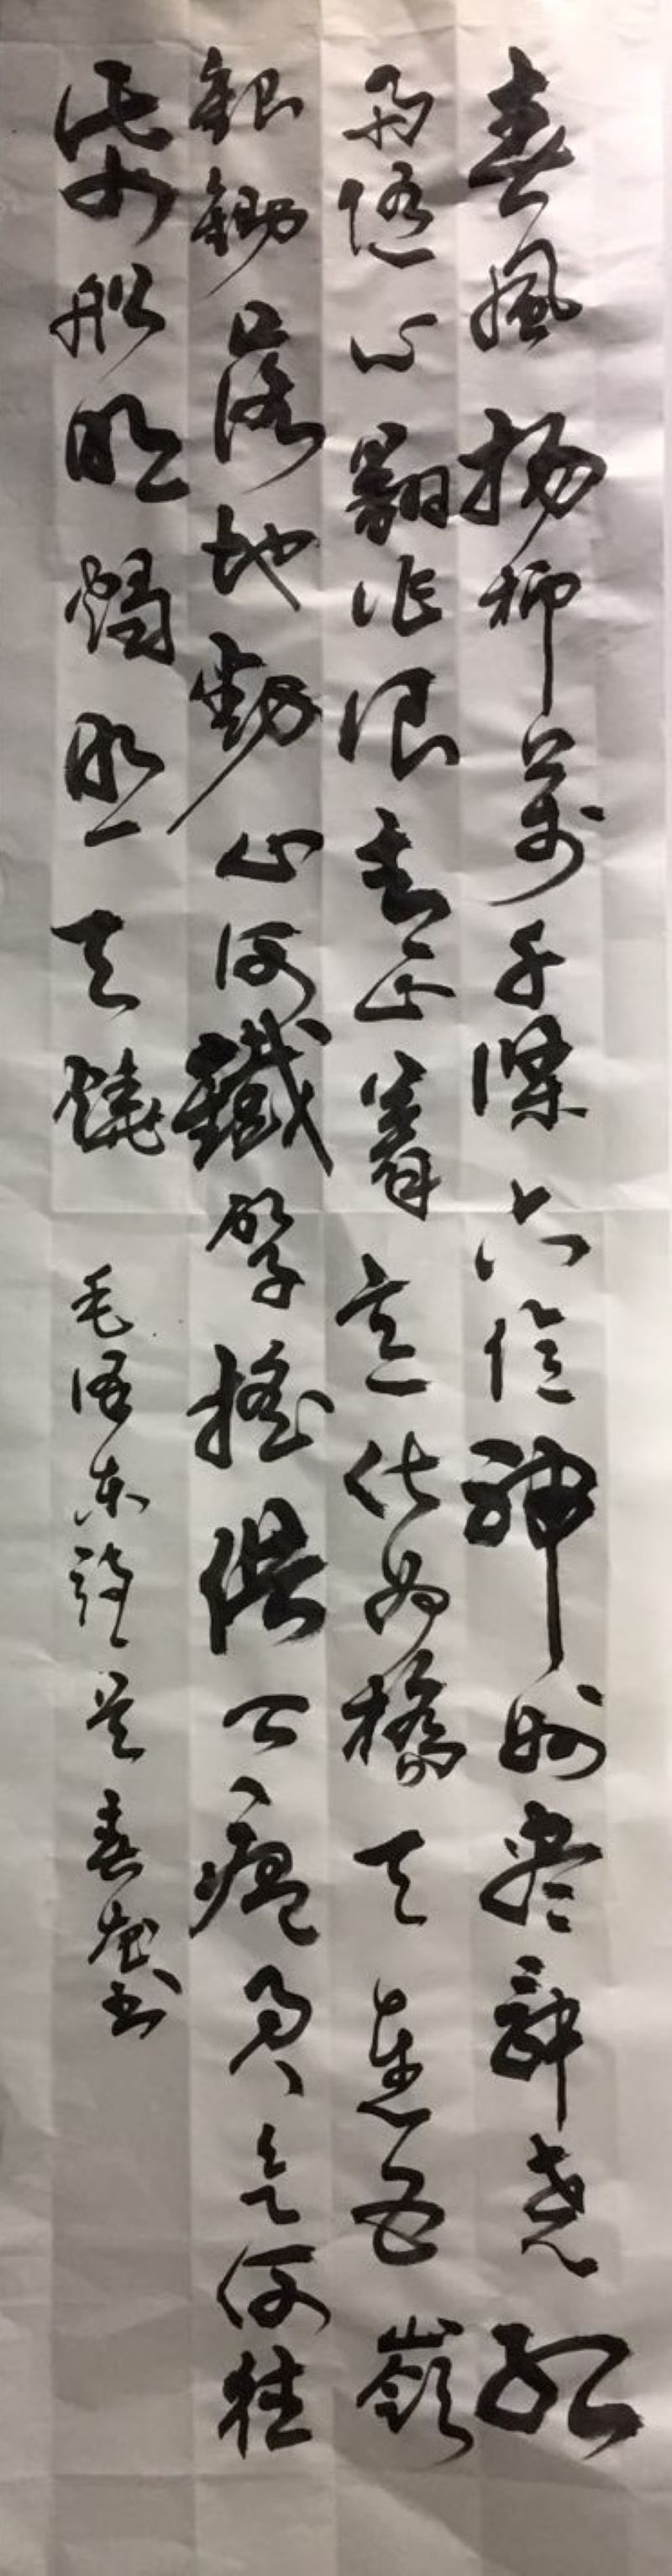 春風楊柳萬千條六億神州盡舜堯紅
雨隨心翻作浪青山着意化为橋天連五嶺
銀鋤落地動三河鐵臂搖借问瘟君欲何往
紙船明燭照天燒 毛澤東詩 春 书